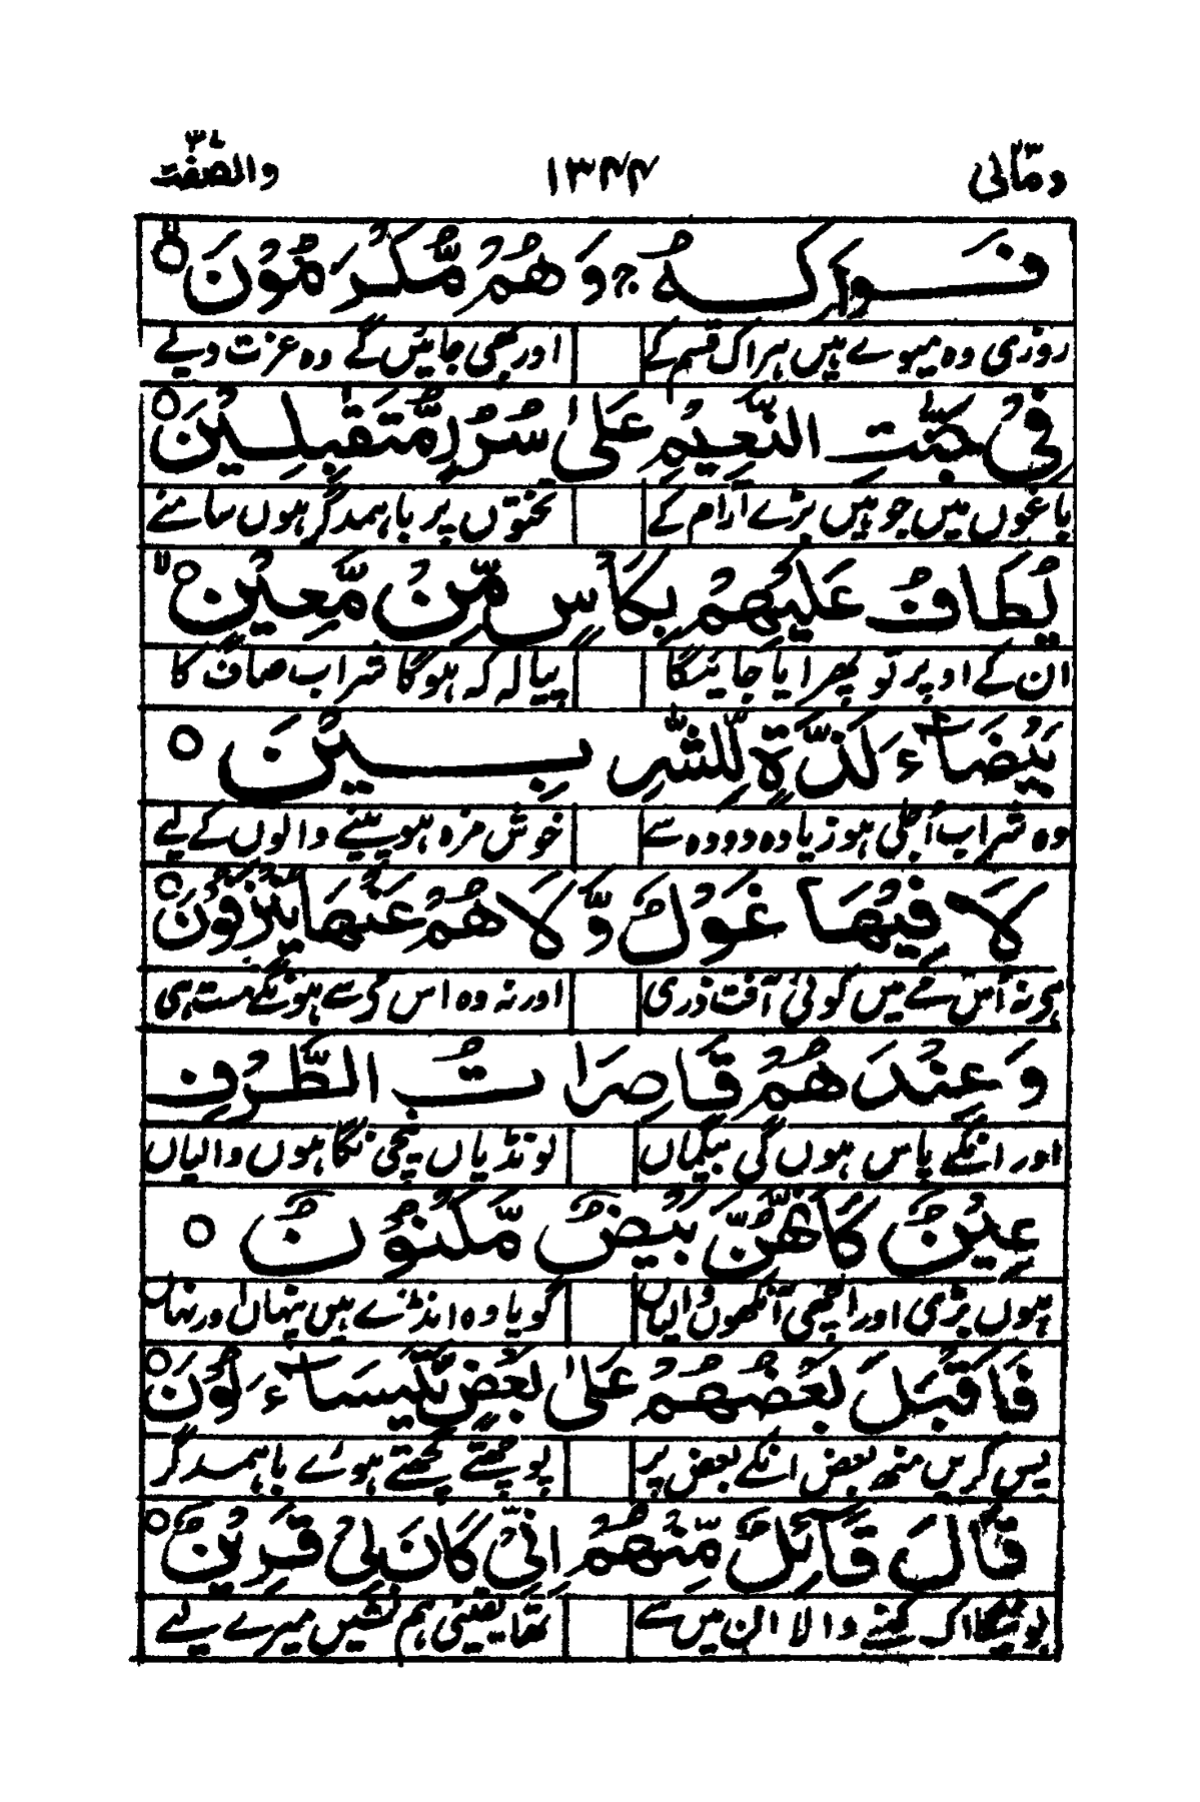 ومالی ۲۳ ۱۳۴۴ والصّٰفّٰت ۳۷
فَوَاكِهُ ۚ وَهُمْ مُّكْرَمُوْنَ ۙ
روزی وہ میوے ہیں ہر اک قسم کے اور بھی جائیں گے وہ عزت دیے
فِيْ جَنّٰتِ النَّعِيْمِ عَلٰى سُرُرٍ مُّتَقٰبِلِيْنَ ۝
باغوں میں جو ہیں بڑے آرام کے تختوں پر باہمدگر ہوں سامنے
يُطَافُ عَلَيْهِمْ بِكَاْسٍ مِّنْ مَّعِيْنٍ ۙ
ان کے اوپر تو پھرایا جائیگا پیالہ کہ ہوگا شراب صاف کا
بَيْضَآءَ لَذَّةٍ لِّلشّٰرِبِيْنَ ۝
وہ شراب اُجلی ہو زیادہ دودہ سے خوش مزہ ہو پینے والوں کے لیے
لَا فِيْهَا غَوْلٌ وَّلَا هُمْ عَنْهَا يُنْزَفُوْنَ ۝
ہو نہ اُس مے میں کوئی آفت ذری اور نہ وہ اس سے ہونگے مست ہی
وَعِنْدَهُمْ قَاصِرَاتُ الطَّرْفِ
اور انکے پاس ہوں گی بیگماں لونڈیاں نیچی نگاہوں والیاں
عِيْنٌ كَاَنَّهُنَّ بَيْضٌ مَّكْنُوْنٌ ۝
ہوں بڑی اور اچھی آنکھوں والیاں گویا وہ انڈے ہیں پنہاں اور نہاں
فَاَقْبَلَ بَعْضُهُمْ عَلٰى بَعْضٍ يَّتَسَآءَلُوْنَ ۝
پس کریں منھ بعض انکے بعض پر پوچھتے گچھتے ہوے باہمدگر
قَالَ قَآئِلٌ مِّنْهُمْ اِنِّيْ كَانَ لِيْ قَرِيْنٌ ۝
اک کہنے والا ان میں سے تھا یقینی ہم نشیں میرے لیے